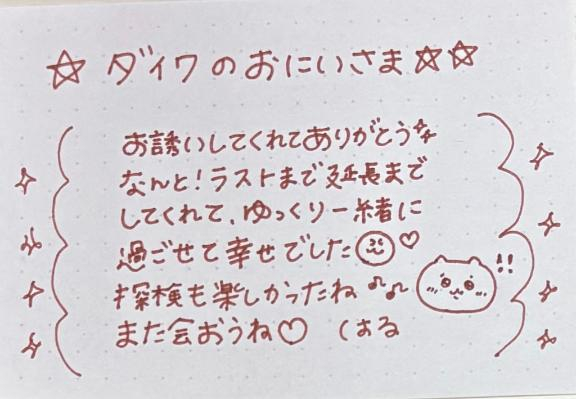 ☆ダイワのおにいさま☆☆
お誘いしてくれてありがとう
なんと!ラストまで延長まで
してくれて、ゆっくり一緒に
過ごせて幸せでした♡
探検も楽しかったね♫♫ !!
また会おうね♡ (はる